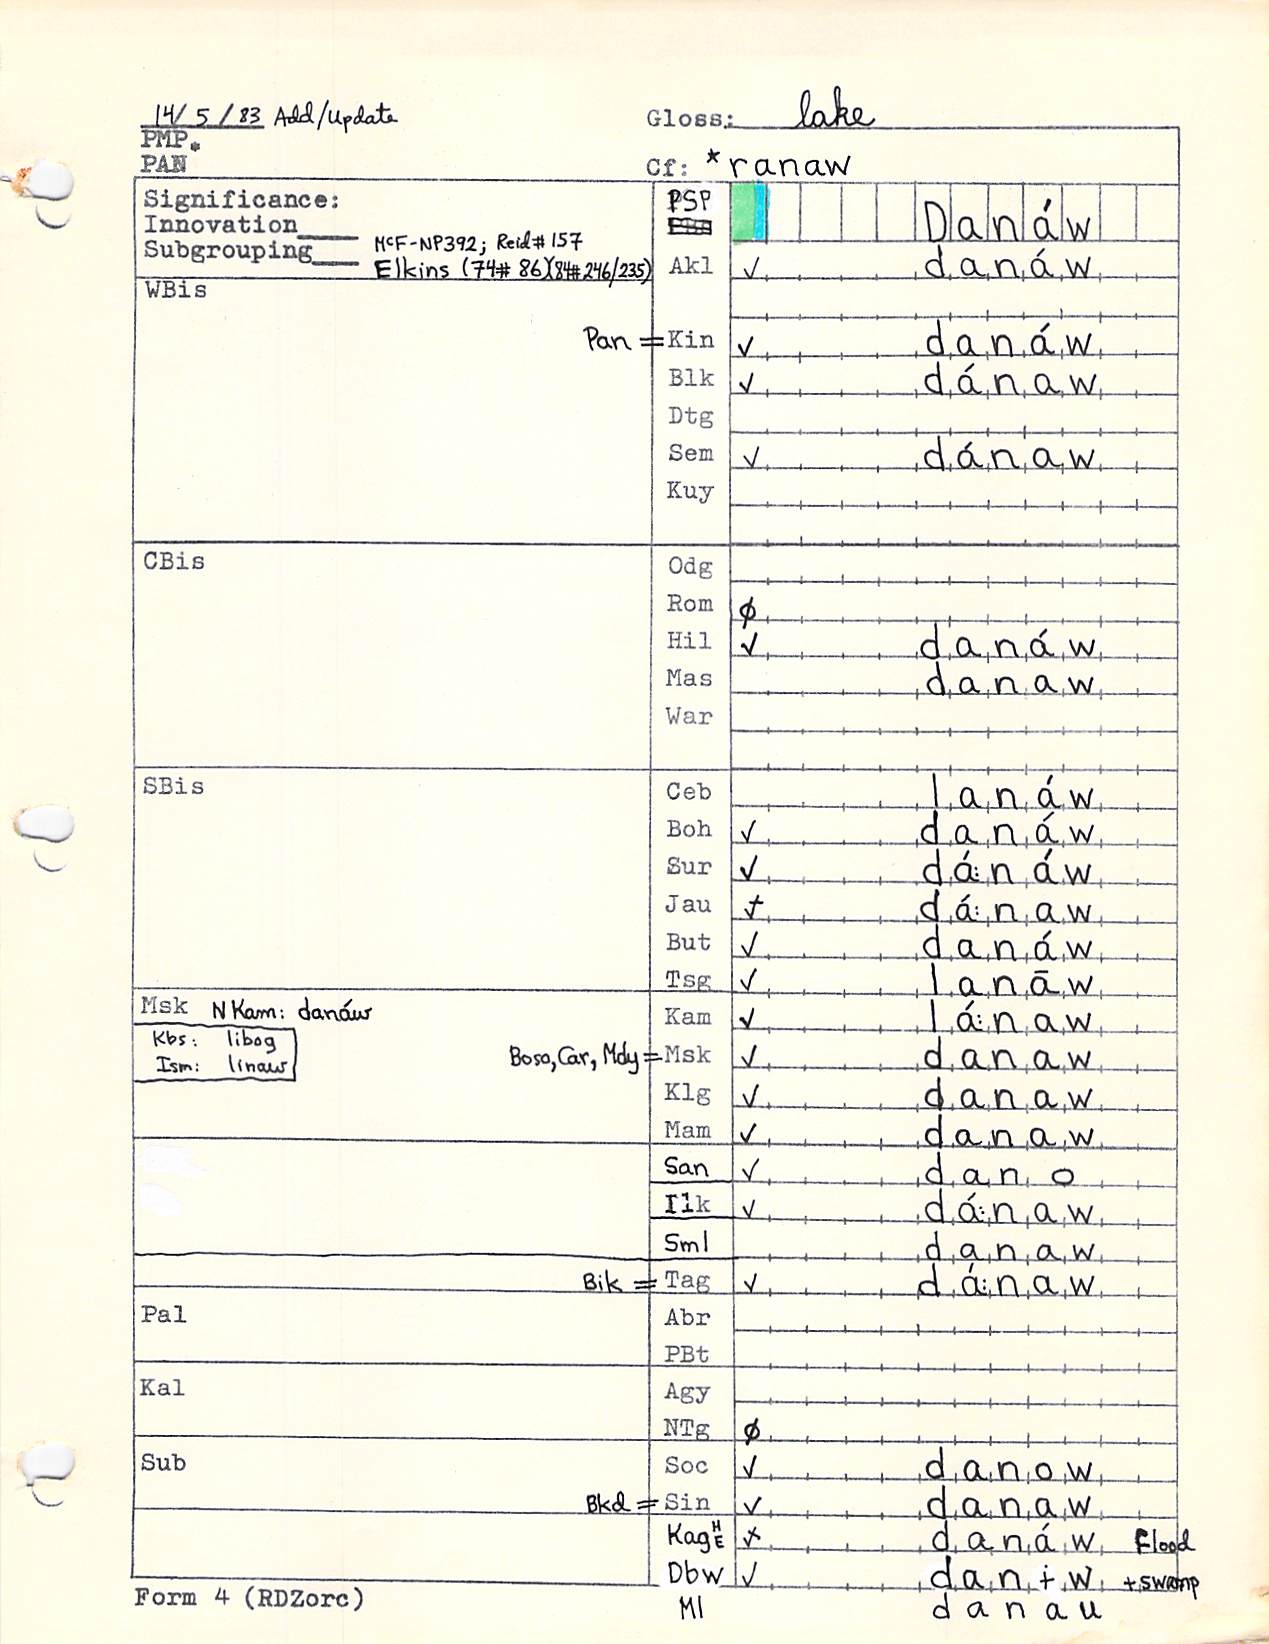 14/ 5 / 83 Add/Update Gloss: lake
PMP.
PAN Cf: *ranaw
Significance: PSP Danáw
Innovation
Subgrouping McF-NP392; Reid# 157
Elkins (74# 86)(84#246/235) Akl ✓ danáw
WBis
Pan = Kin ✓ danáw
Blk ✓ dánaw
Dtg
Sem ✓ dánaw
Kuy
CBis Odg
Rom ∅
Hil ✓ danáw
Mas danaw
War
SBis Ceb lanáw
Boh ✓ danáw
Sur ✓ dá:náw
Jau + dá:naw
But ✓ danáw
Tsg ✓ lanāw
Msk N Kam: danáw Kam ✓ lá:naw
Kbs: libog
Boso, Car, Mdy = Msk ✓ danaw
Ism: linaw
Klg ✓ danaw
Mam ✓ danaw
San ✓ dano
Ilk ✓ dá:naw
Sml danaw
Bik = Tag ✓ dá:naw
Pal Abr
PBt
Kal Agy
NTg ∅
Sub Soc ✓ danow
Bkd = Sin ✓ danaw
Kag H E x danáw Flood
Dbw ✓ danɨw + swamp
Form 4 (RDZorc) Ml danau